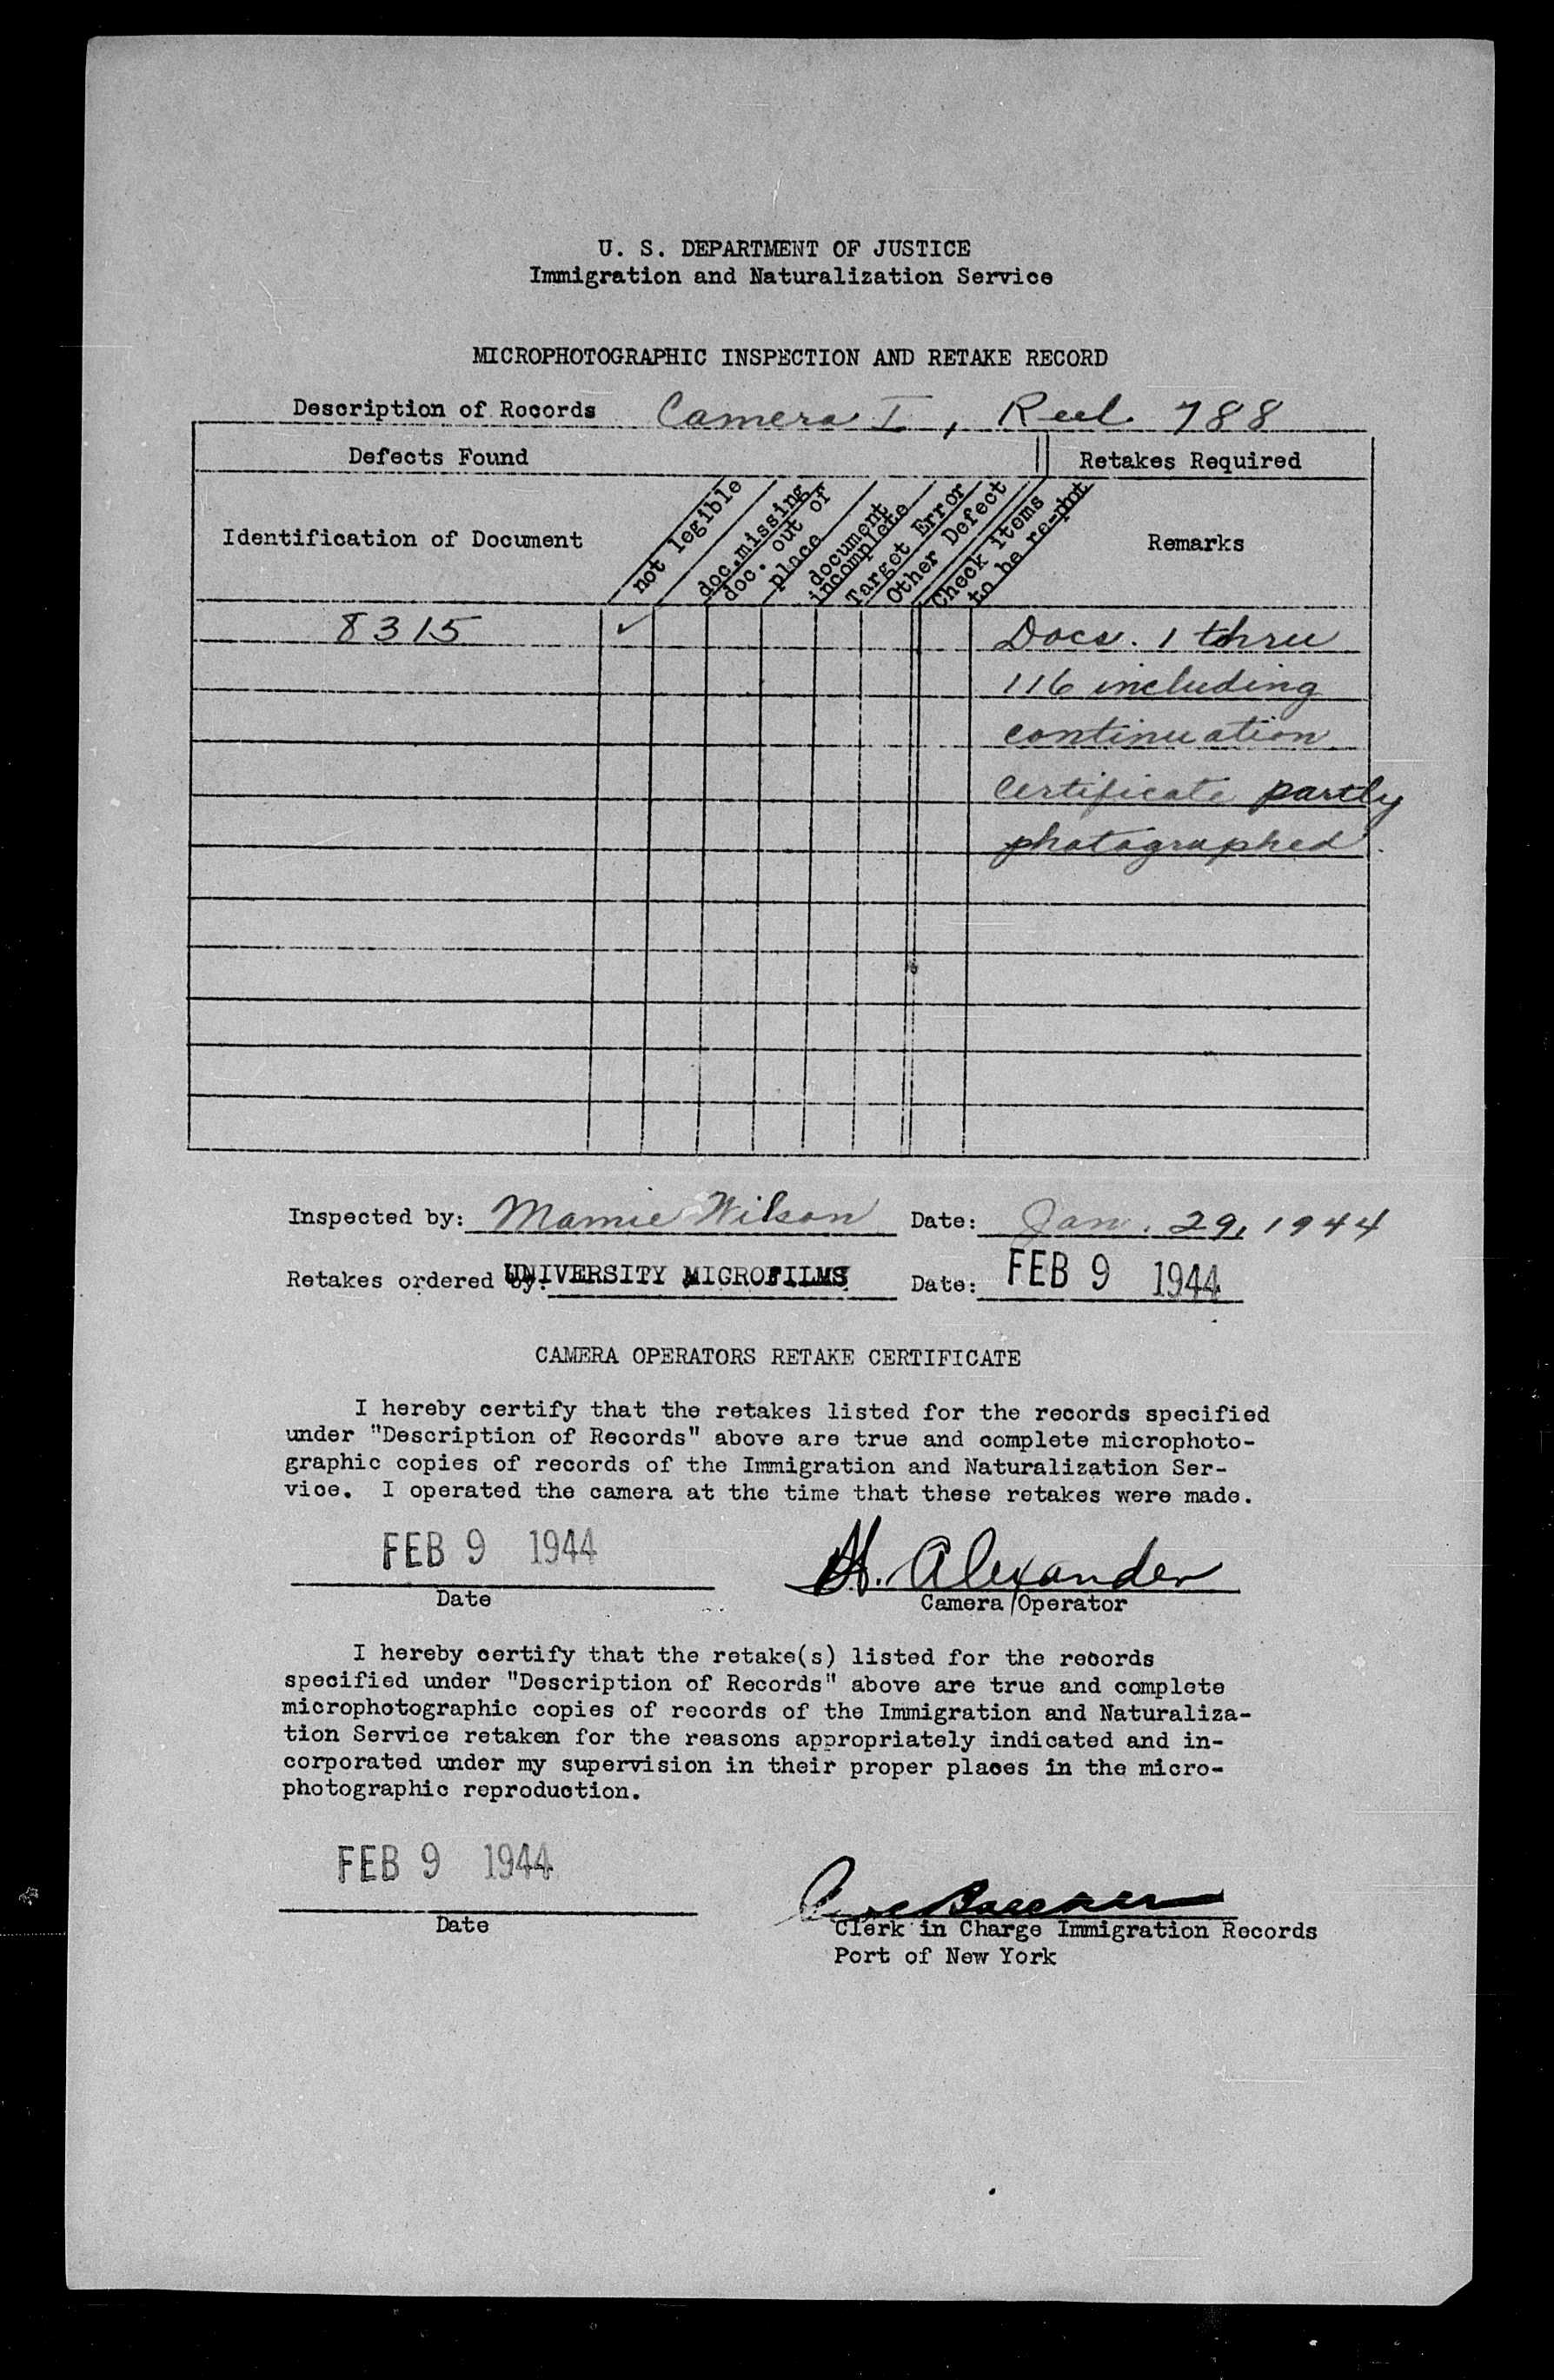 U. S. DEPARTMENT OF JUSTICE
Immigration and Naturalization Service
MICROPHOTOGRAPHIC INSPECTION AND RETAKE RECORD
Description of Records Camera I, Reel 788
Defects Found
Retakes Required
Identification of Document
not legible
doc. missing
doc. out of
place
document
incomplete
Target Error
Other Defect
Check items
to be re-phot
Remarks
8315 ✓ Docs. 1 thru
116 including
continuation
Certificate partly
photographed.
Inspected by: Mamie Wilson Date: Jan. 29, 1944
Retakes ordered by: UNIVERSITY MICROFILMS Date: FEB 9 1944
CAMERA OPERATORS RETAKE CERTIFICATE
I hereby certify that the retakes listed for the records specified
under "Description of Records" above are true and complete microphoto-
graphic copies of records of the Immigration and Naturalization Ser-
vice. I operated the camera at the time that these retakes were made.
FEB 9 1944 H. Alexander
Date Camera Operator
I hereby certify that the retake(s) listed for the records
specified under "Description of Records" above are true and complete
microphotographic copies of records of the Immigration and Naturaliza-
tion Service retaken for the reasons appropriately indicated and in-
corporated under my supervision in their proper places in the micro-
photographic reproduction.
FEB 9 1944
Date Clerk in Charge Immigration Records
Port of New York